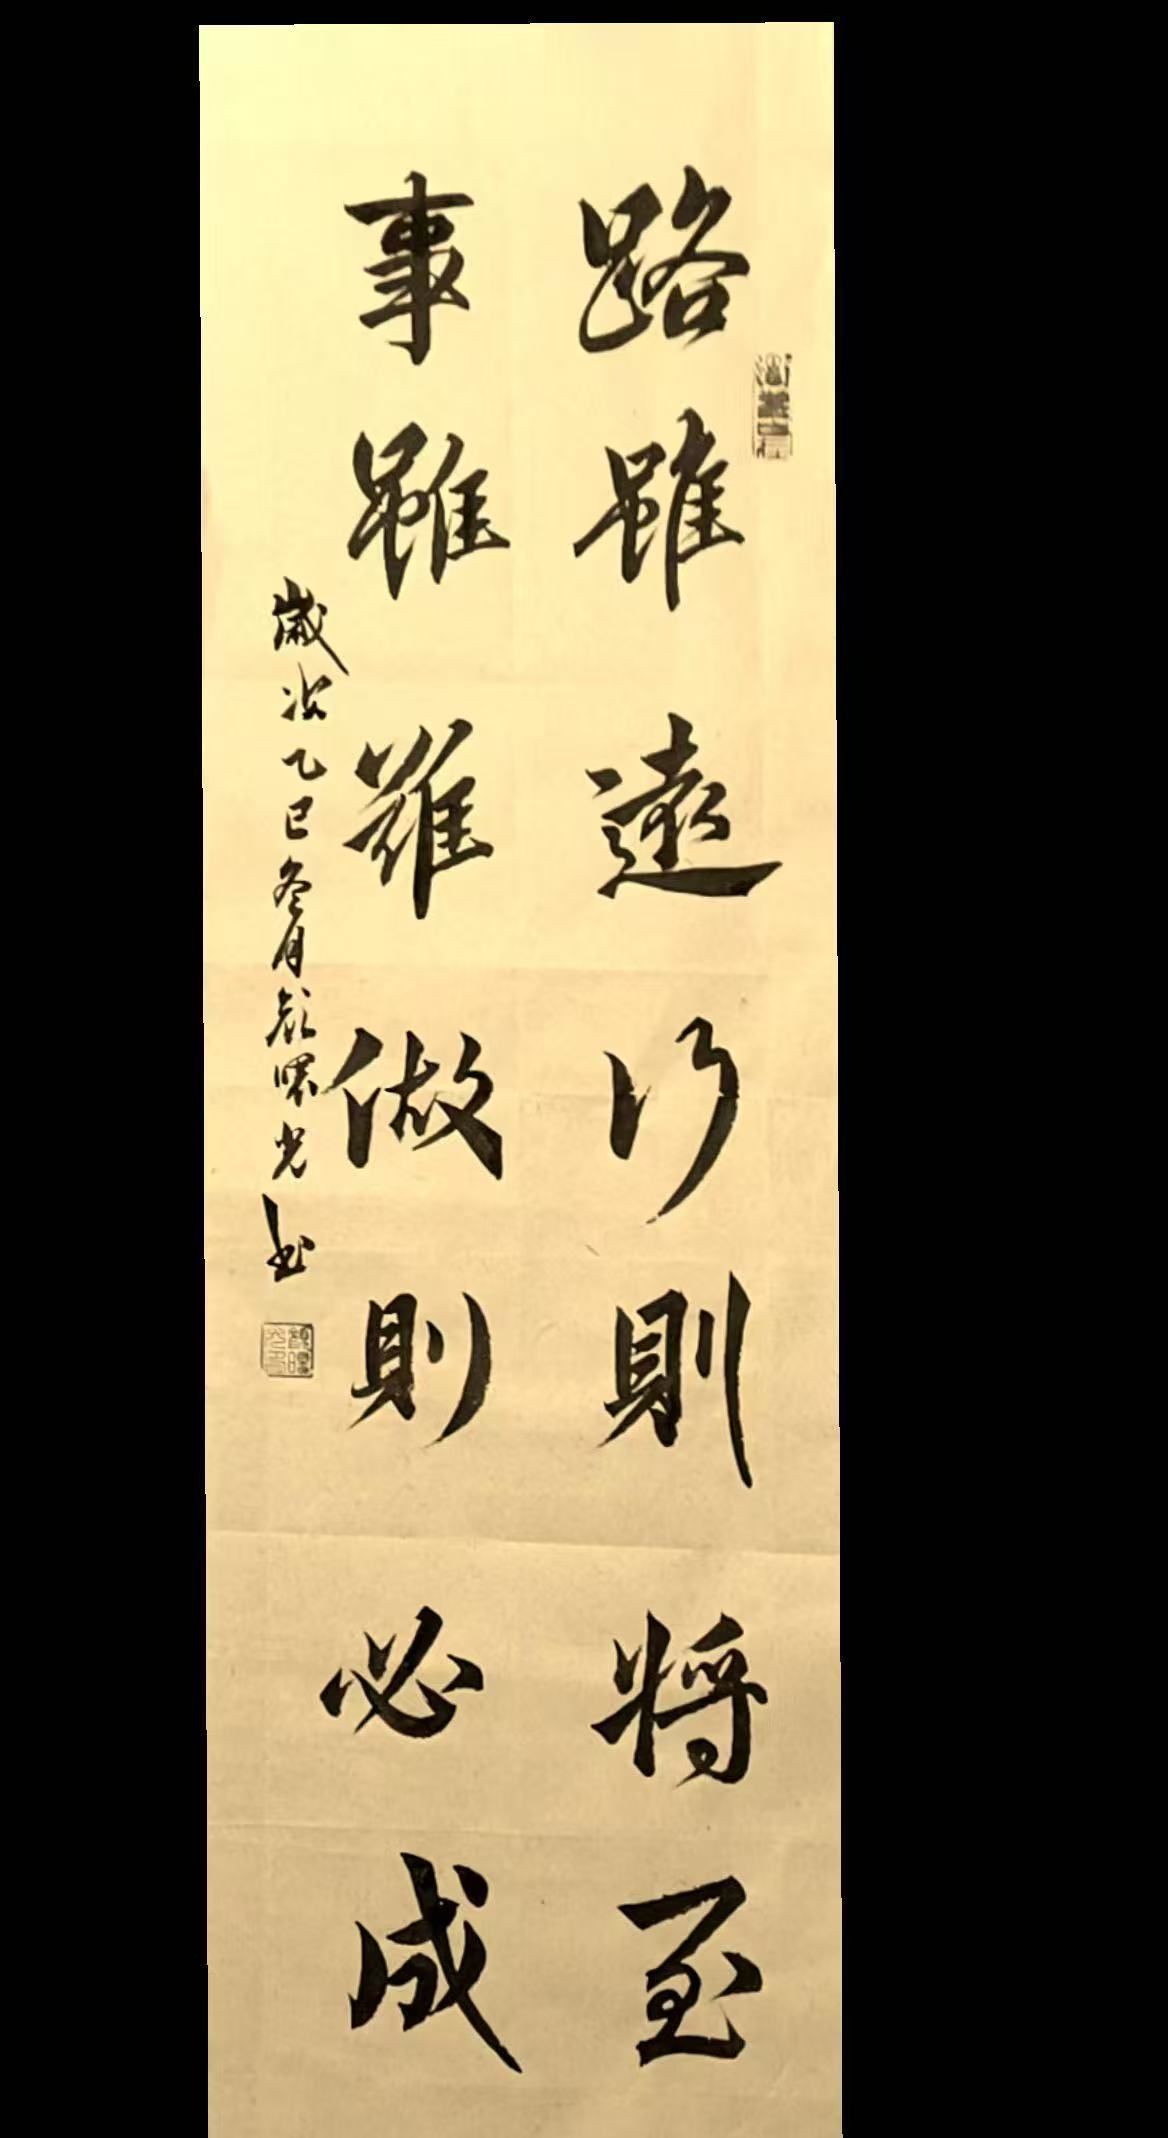 路雖遠行則將至
事雖難做則必成
歲次乙巳冬月顧曙光書